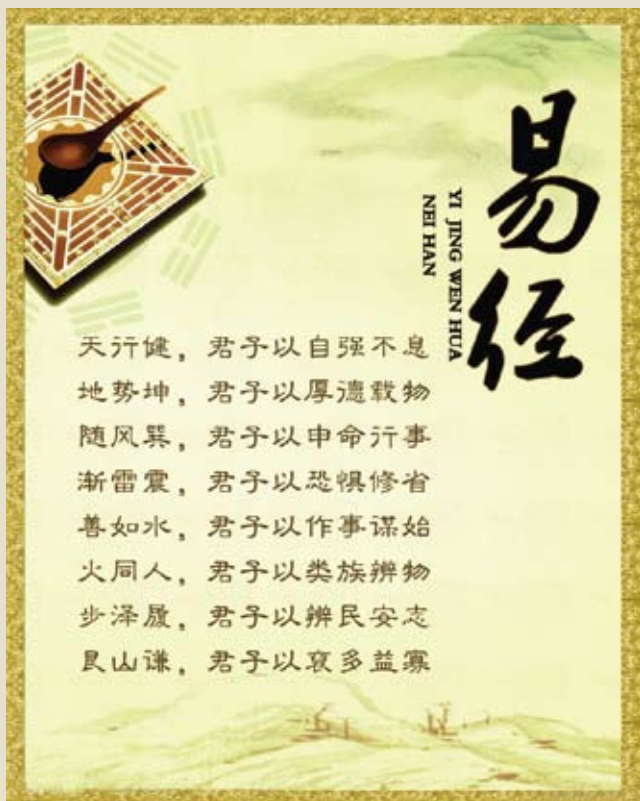 易经
YI JING WEN HUA
NEI HAN
天行健，君子以自强不息
地势坤，君子以厚德载物
随风巽，君子以申命行事
渐雷震，君子以恐惧修省
善如水，君子以作事谋始
火同人，君子以类族辨物
步泽履，君子以辨民安志
艮山谦，君子以裒多益寡